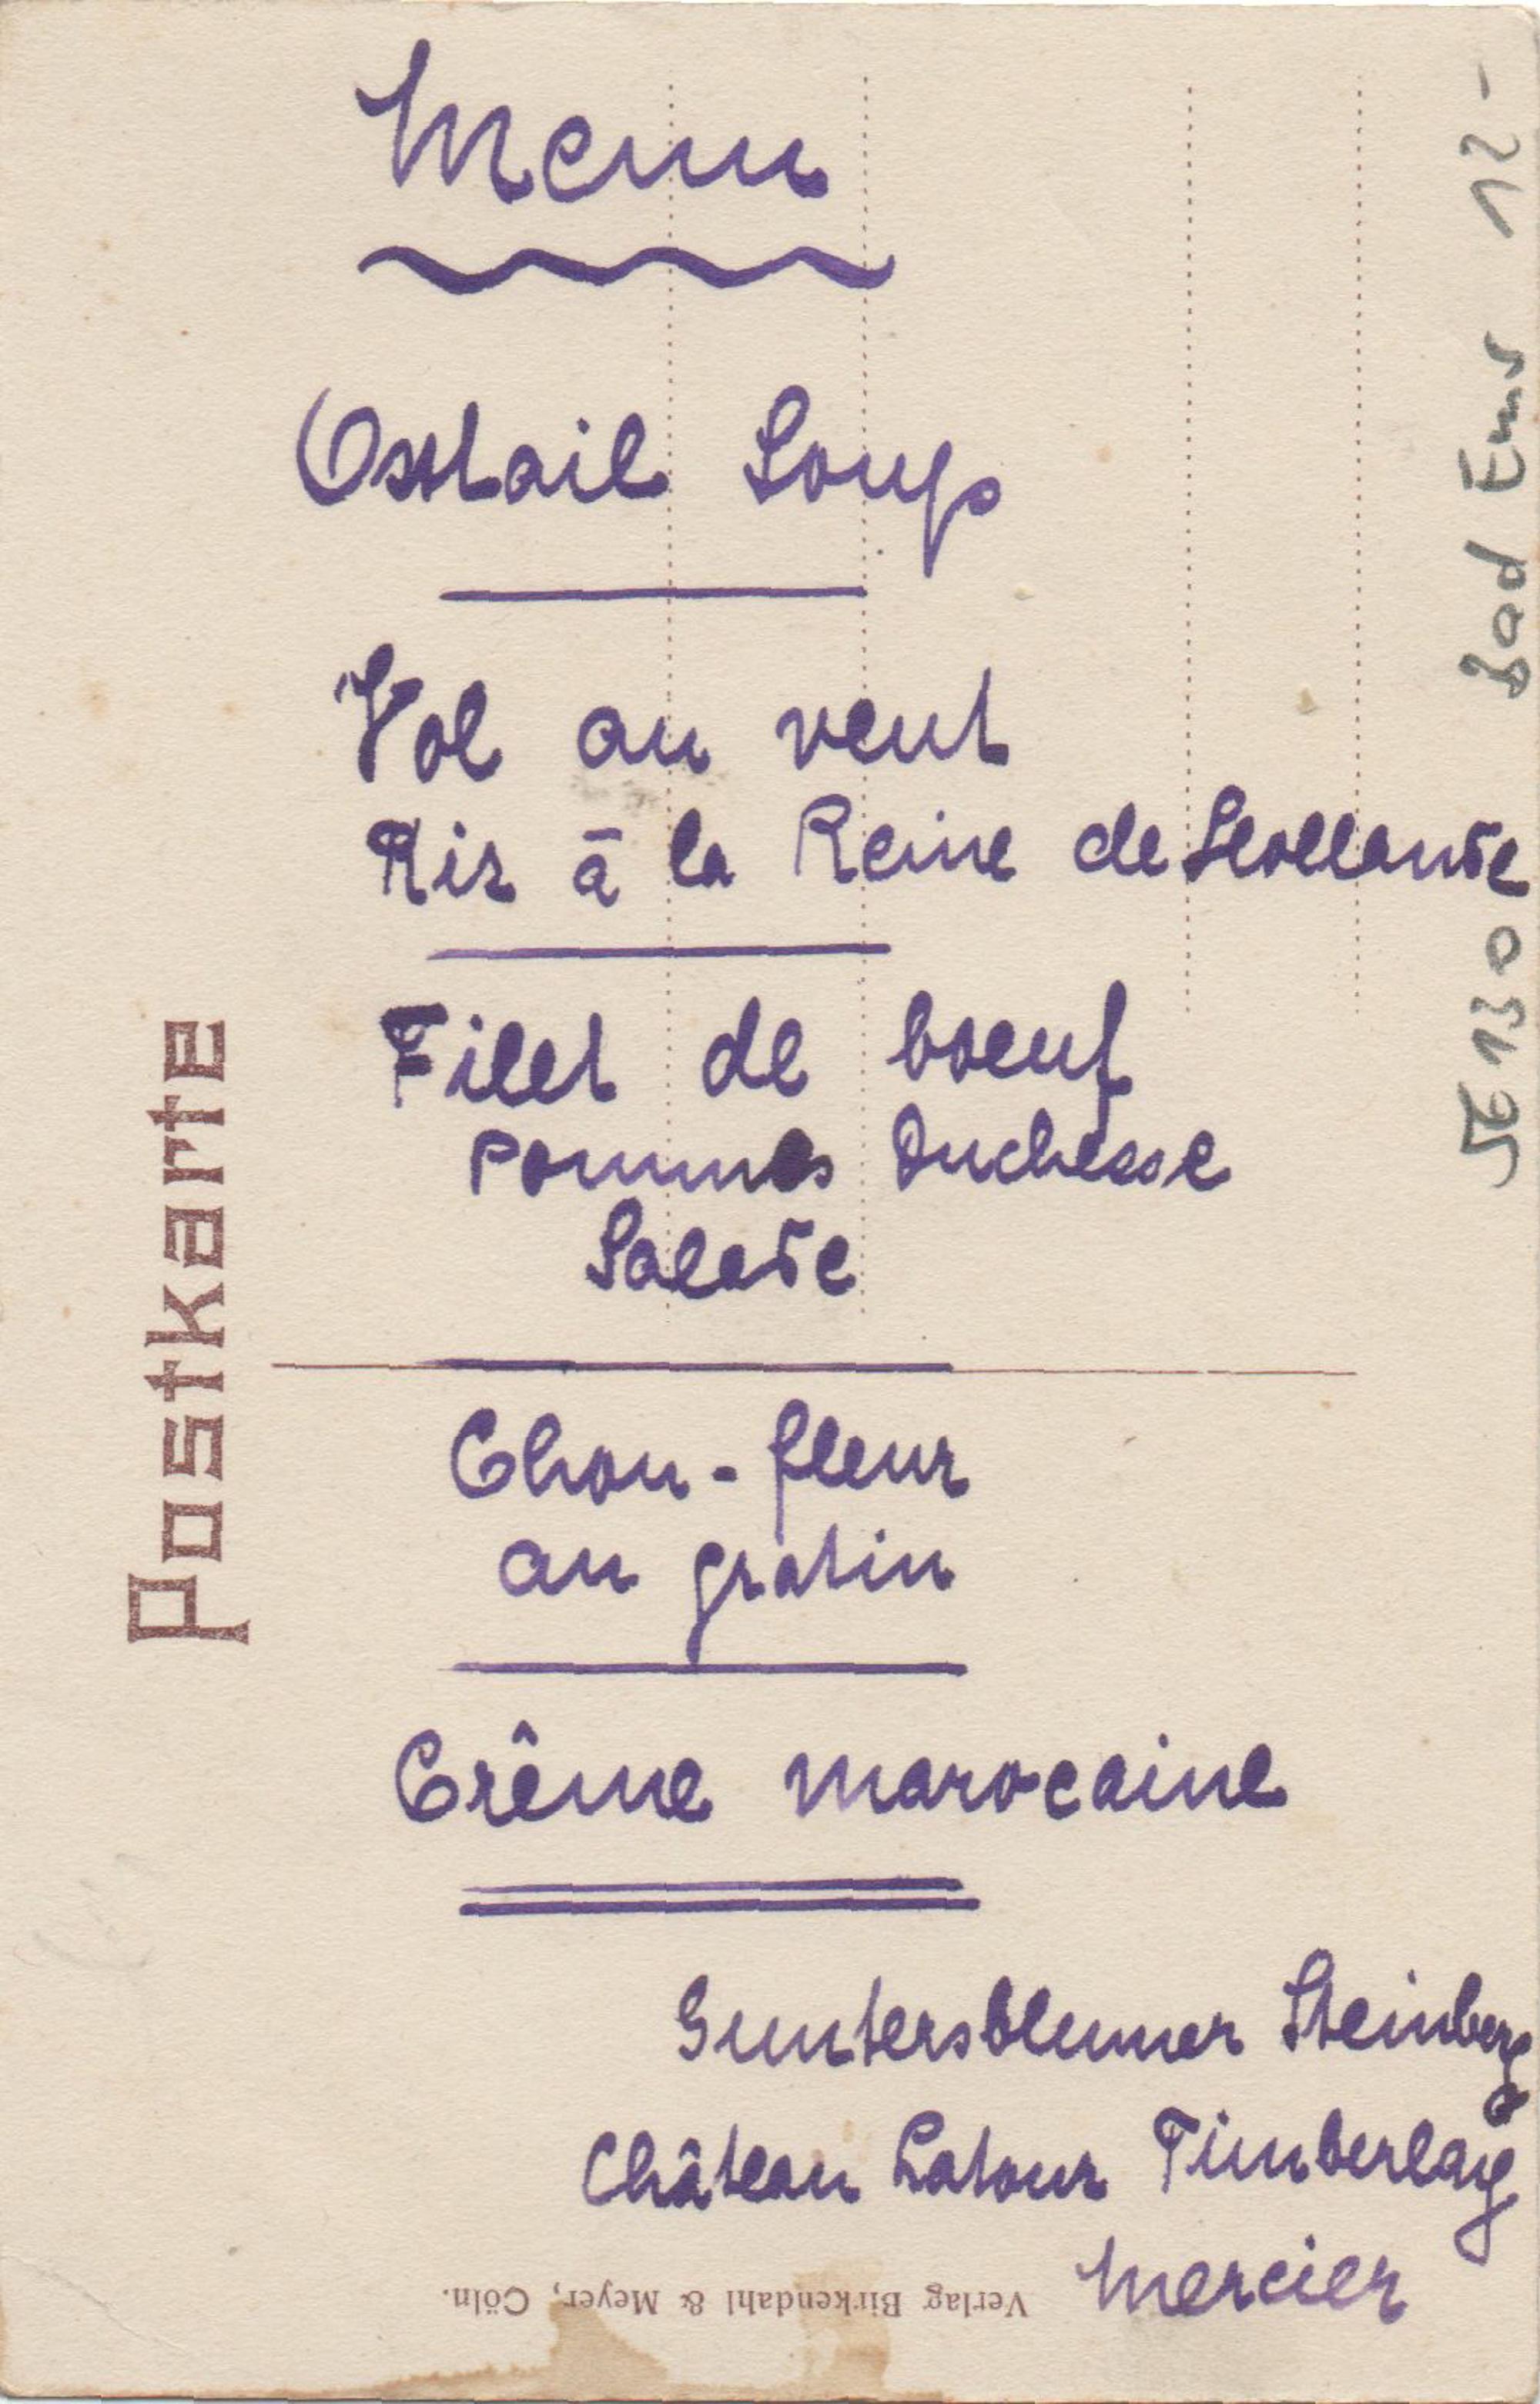 Menu
Oxtail Soup
Vol au vent
Ris à la Reine de Hollande
Filet de boeuf
pommes Duchesse
Salade
Chou-fleur
au gratin
Crême marocaine
Guntersblumer Steinberg
Château Latour Timberlay
Mercier
Postkarte
Verlag Birkendahl & Meyer, Cöln.
Bad Ems 12-
5E130